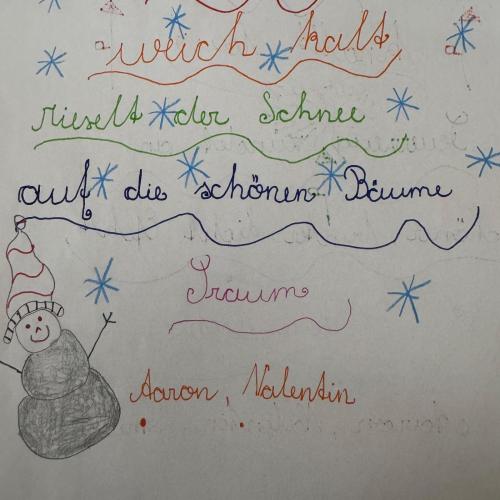 weich kalt
rieselt der Schnee
auf die schönen Bäume
Traum
Aaron, Valentin